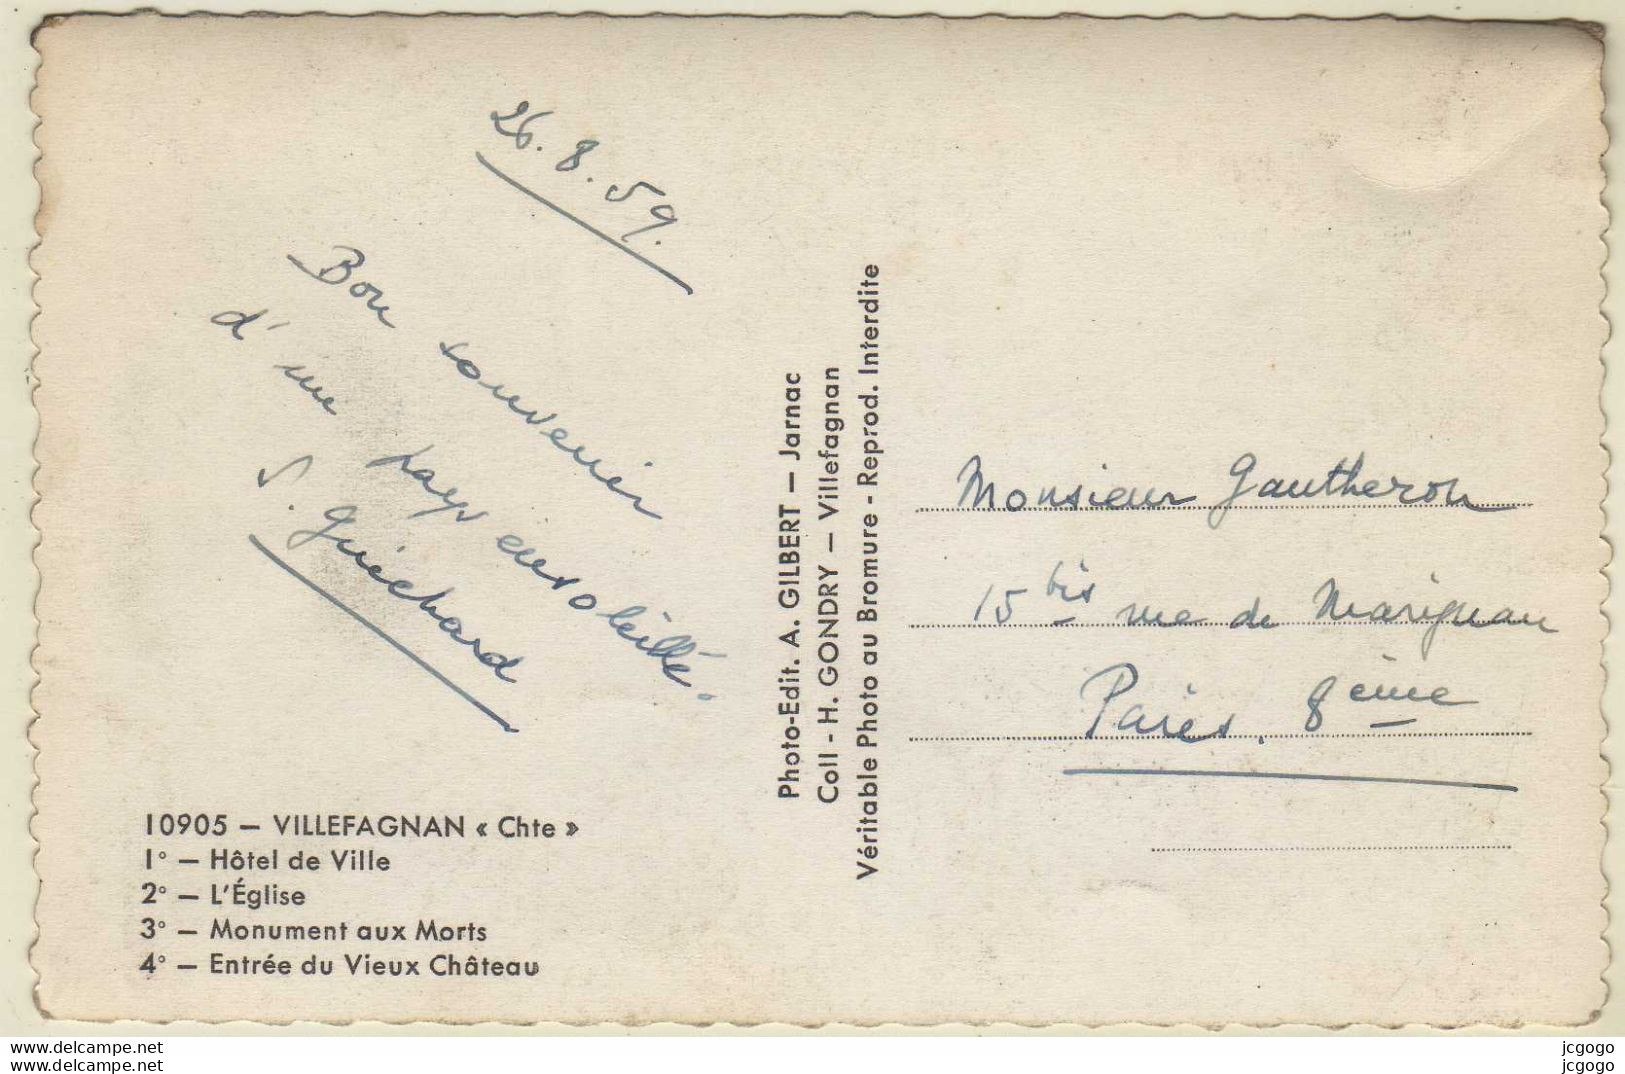 26.8.59.
Bon souvenir
d'un pays ensoleillé.
S. Guichard
10905 — VILLEFAGNAN « Chte »
1° — Hôtel de Ville
2° — L'Église
3° — Monument aux Morts
4° — Entrée du Vieux Château
Photo-Edit. A. GILBERT — Jarnac
Coll - H. GONDRY — Villefagnan
Véritable Photo au Bromure - Reprod. Interdite
Monsieur Gautheron
15 bis rue de Marignan
Paris. 8ème
www.delcampe.net
www.delcampe.net
jcgogo
jcgogo